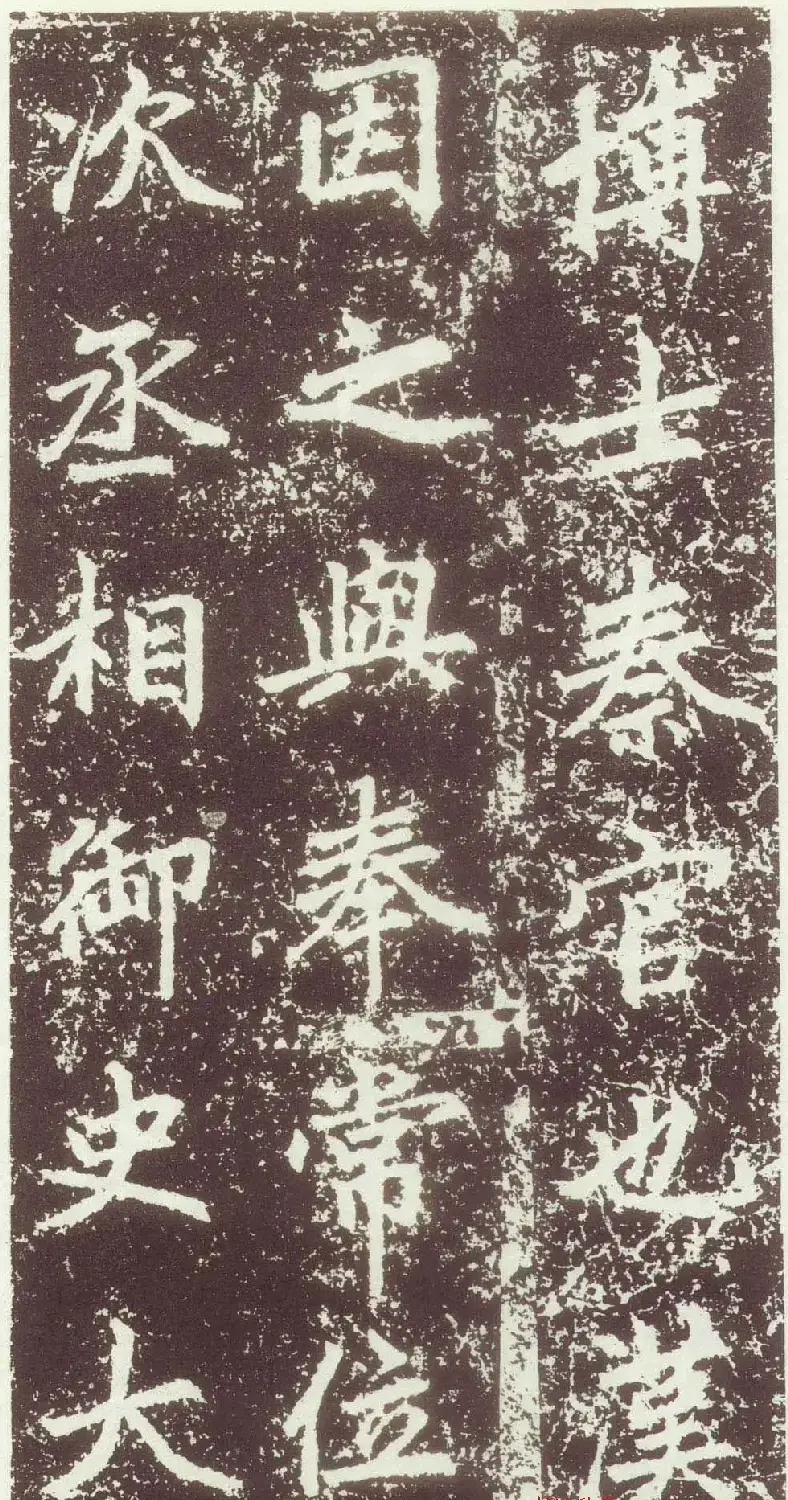 博士秦官也漢
因之與奉常位
次丞相御史大